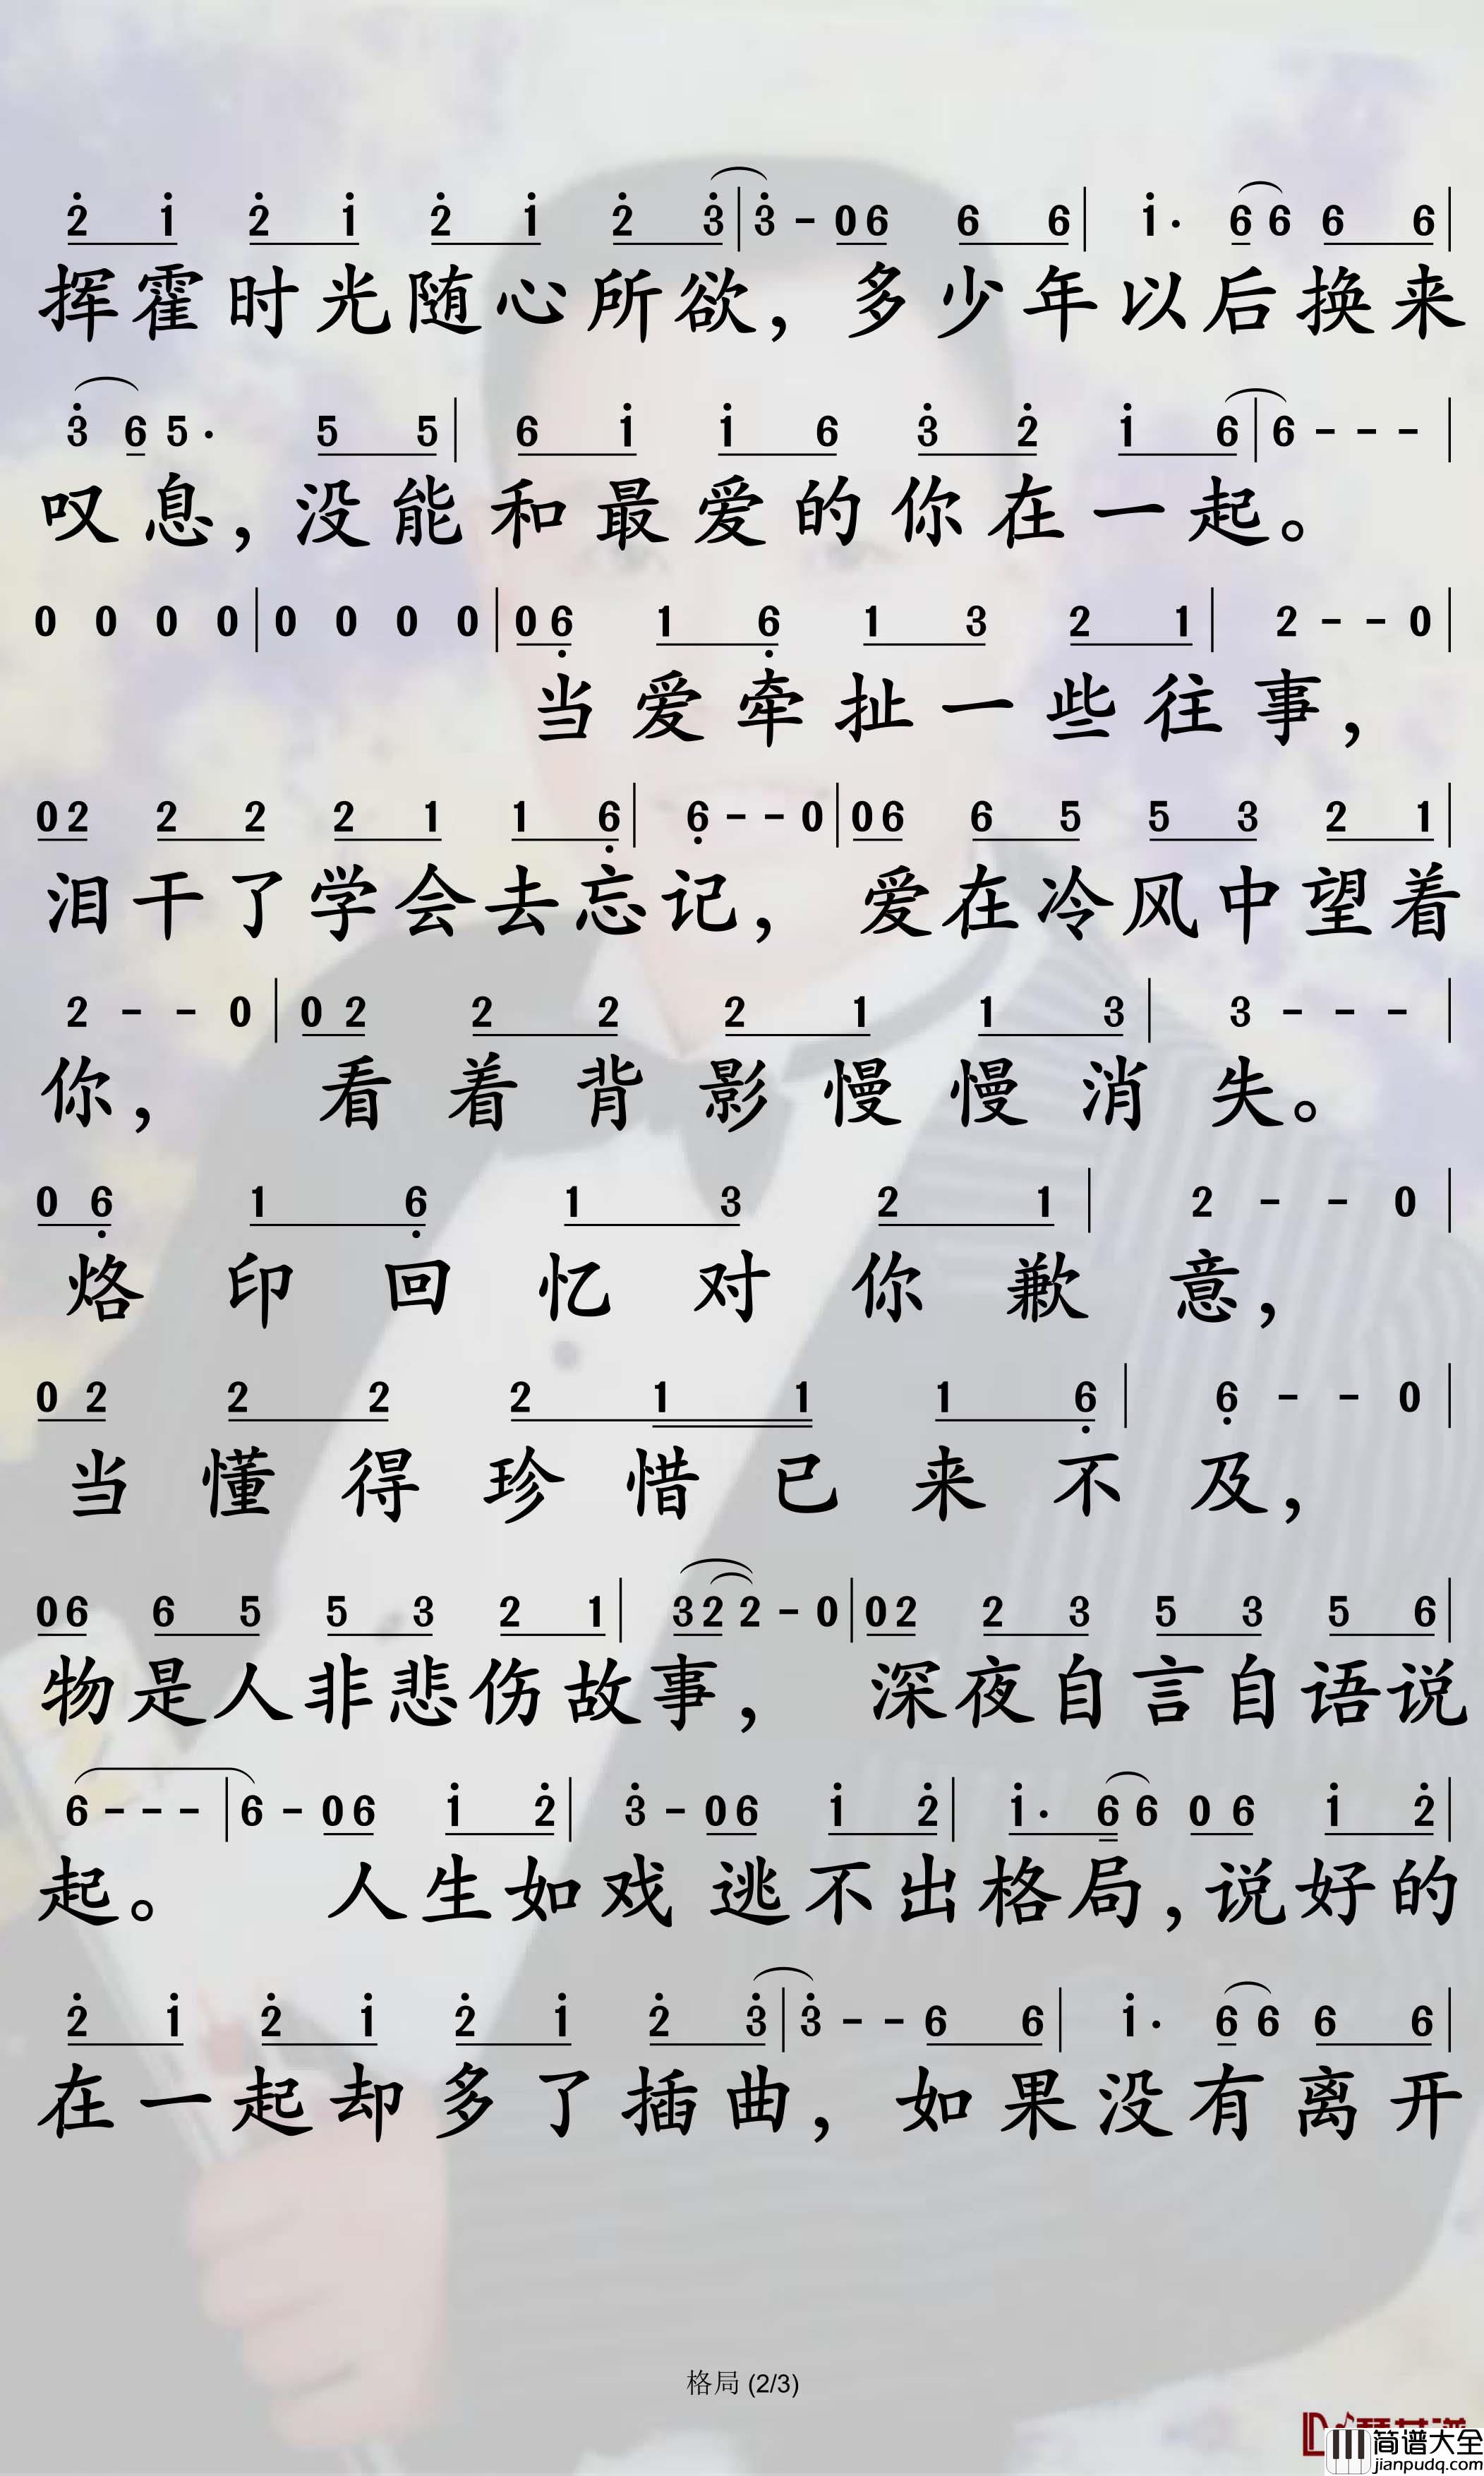 2̇ 1̇ 2̇ 1̇ 2̇ 1̇ 2̇ 3̇ | 3̇ - 0 6 6 6 | 1̇· 6 6 6 6 |
挥霍时光随心所欲，多少年以后换来
3̇ 6 5· 5 5 | 6 1̇ 1̇ 6 3̇ 2̇ 1̇ 6 | 6 - - - |
叹息，没能和最爱的你在一起。
0 0 0 0 | 0 0 0 0 | 0 6̣ 1 6̣ 1 3 2 1 | 2 - - 0 |
当爱牵扯一些往事，
0 2 2 2 2 1 1 6̣ | 6̣ - - 0 | 0 6 6 5 5 3 2 1 |
泪干了学会去忘记，爱在冷风中望着
2 - - 0 | 0 2 2 2 2 1 1 3 | 3 - - - |
你，看着背影慢慢消失。
0 6̣ 1 6̣ 1 3 2 1 | 2 - - 0 |
烙印回忆对你歉意，
0 2 2 2 2 1 1 1 6̣ | 6̣ - - 0 |
当懂得珍惜已来不及，
0 6 6 5 5 3 2 1 | 3 2 2 - 0 | 0 2 2 3 5 3 5 6 |
物是人非悲伤故事，深夜自言自语说
6 - - - | 6 - 0 6 1̇ 2̇ | 3̇ - 0 6 1̇ 2̇ | 1̇· 6 6 0 6 1̇ 2̇ |
起。人生如戏逃不出格局，说好的
2̇ 1̇ 2̇ 1̇ 2̇ 1̇ 2̇ 3̇ | 3̇ - - 6 6 | 1̇· 6 6 6 6 |
在一起却多了插曲，如果没有离开
格局 (2/3)
简谱大全
jianpudq.com